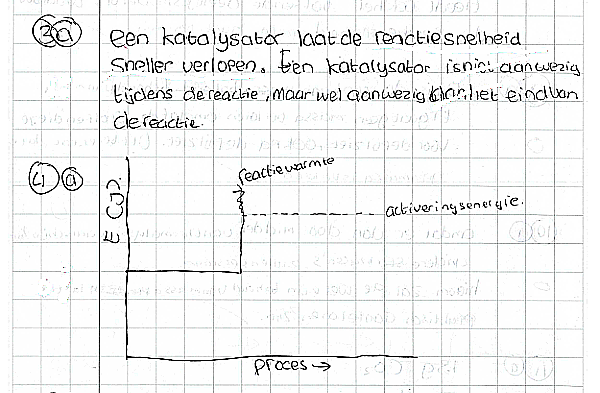 3 a een katalysator laat de reactiesnelheid
sneller verlopen. Een katalysator is niet aanwezig
tijdens de reactie, maar wel aanwezig aan het eind van
de reactie.
4 a
reactiewarmte
activeringsenergie.
E (J)
proces →